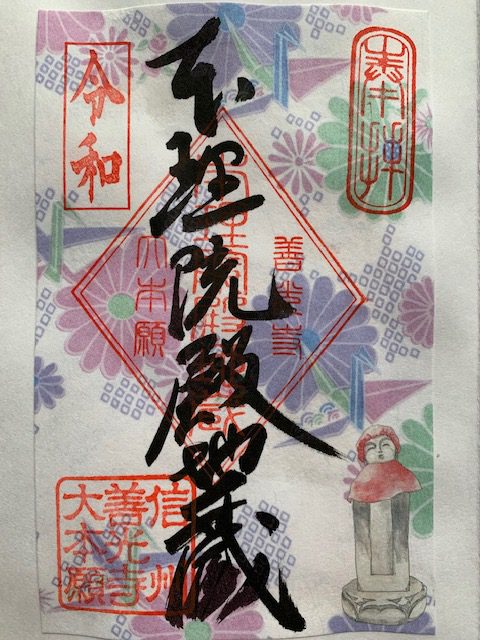 奉拝
善光寺
本理院殿地蔵
大本願
令和
信州
善光寺
大本願